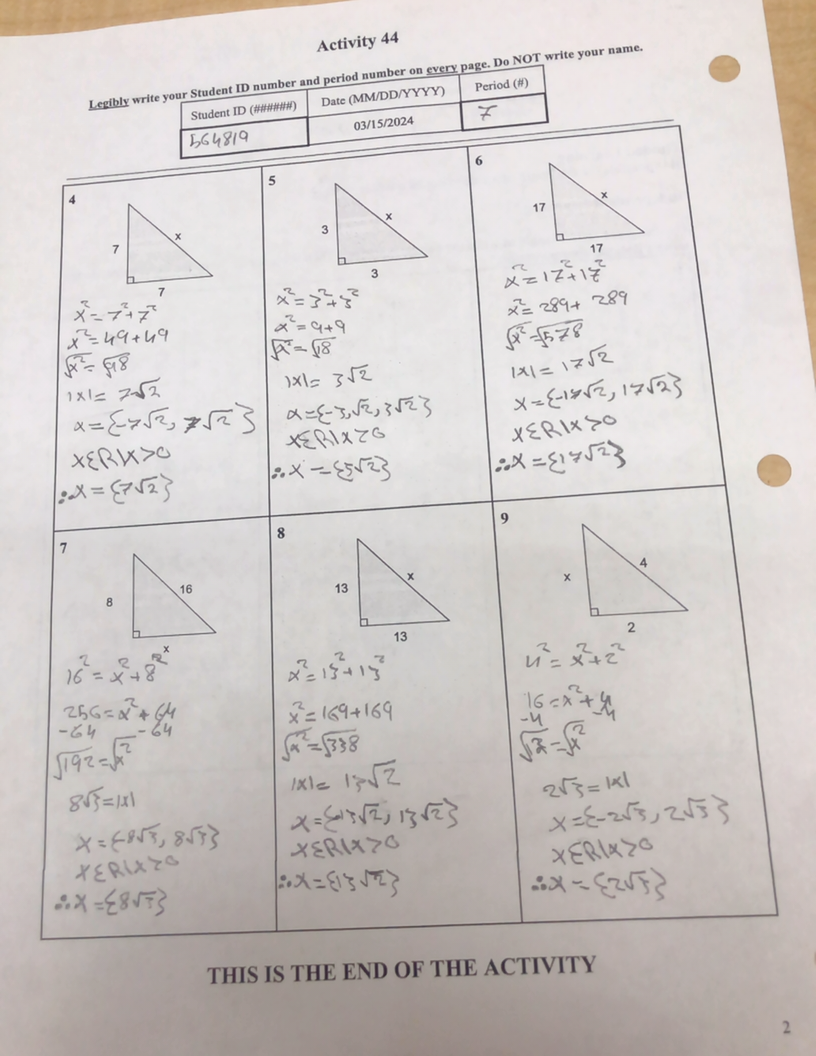 Activity 44
Legibly write your Student ID number and period number on every page. Do NOT write your name.
Student ID (######) Date (MM/DD/YYYY) Period (#)
564819 03/15/2024 7
4
7
x
7
x²=7²+7²
x²=49+49
√x²=√98
|x|= 7√2
x={-7√2, 7√2}
xεR|x>0
∴x={7√2}
5
3
x
3
x²=3²+3²
x²=9+9
√x²=√18
|x|= 3√2
x={-3√2, 3√2}
xεR|x>0
∴x={3√2}
6
17
x
17
x²=17²+17²
x²=289+289
√x²=√578
|x|=17√2
x={-17√2, 17√2}
xεR|x>0
∴x={17√2}
7
8
16
x
16²=x²+8²
256=x²+64
-64 -64
√192=√x²
8√3=|x|
x={-8√3, 8√3}
xεR|x>0
∴x={8√3}
8
13
x
13
x²=13²+13²
x²=169+169
√x²=√338
|x|= 13√2
x={-13√2, 13√2}
xεR|x>0
∴x={13√2}
9
x
4
2
4²=x²+2²
16=x²+4
-4 -4
=√x²
2√3=|x|
x={-2√3, 2√3}
xεR|x>0
∴x={2√3}
THIS IS THE END OF THE ACTIVITY
2